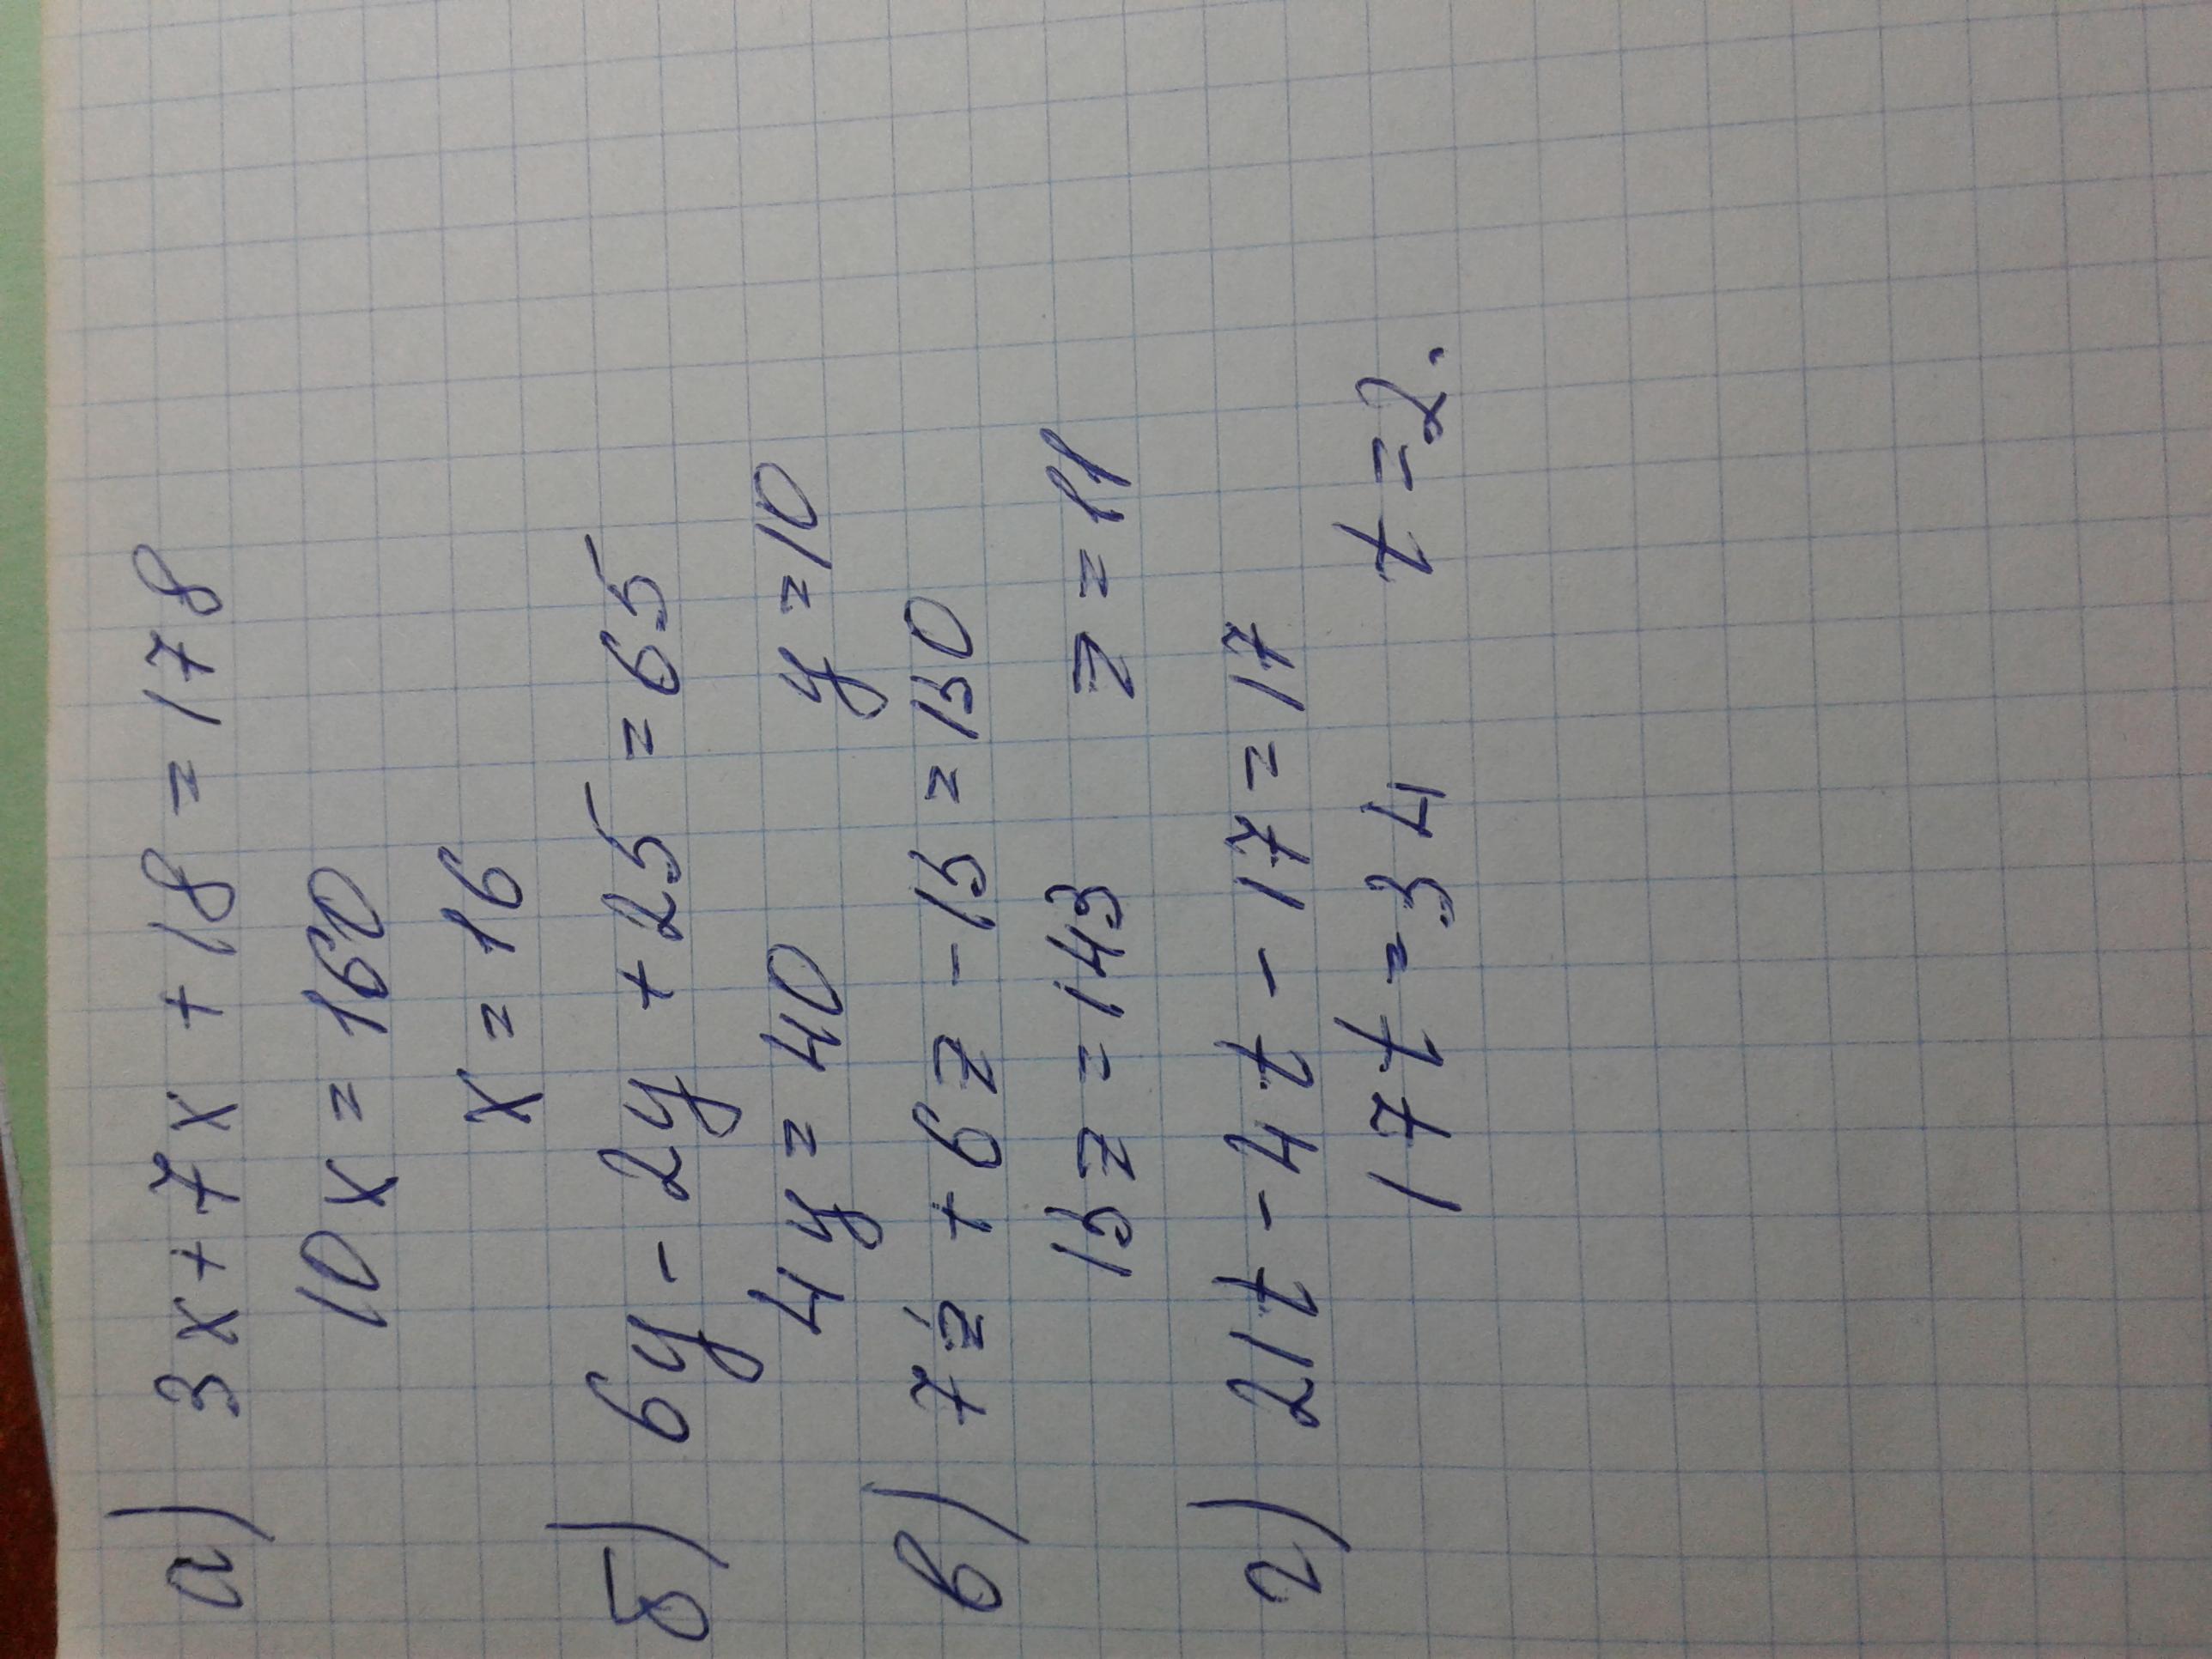 а) 3x+7x+18=178
10x=160
x=16
б) 6y-2y+25=65
4y=40 y=10
в) 7z+6z-13=130
13z=143 z=11
г) 21t-4t-17=17
17t=34 t=2.